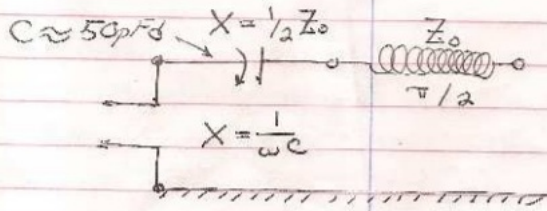 C≈50pFd
X=½Z₀
Z₀
π/2
X=1/ωC